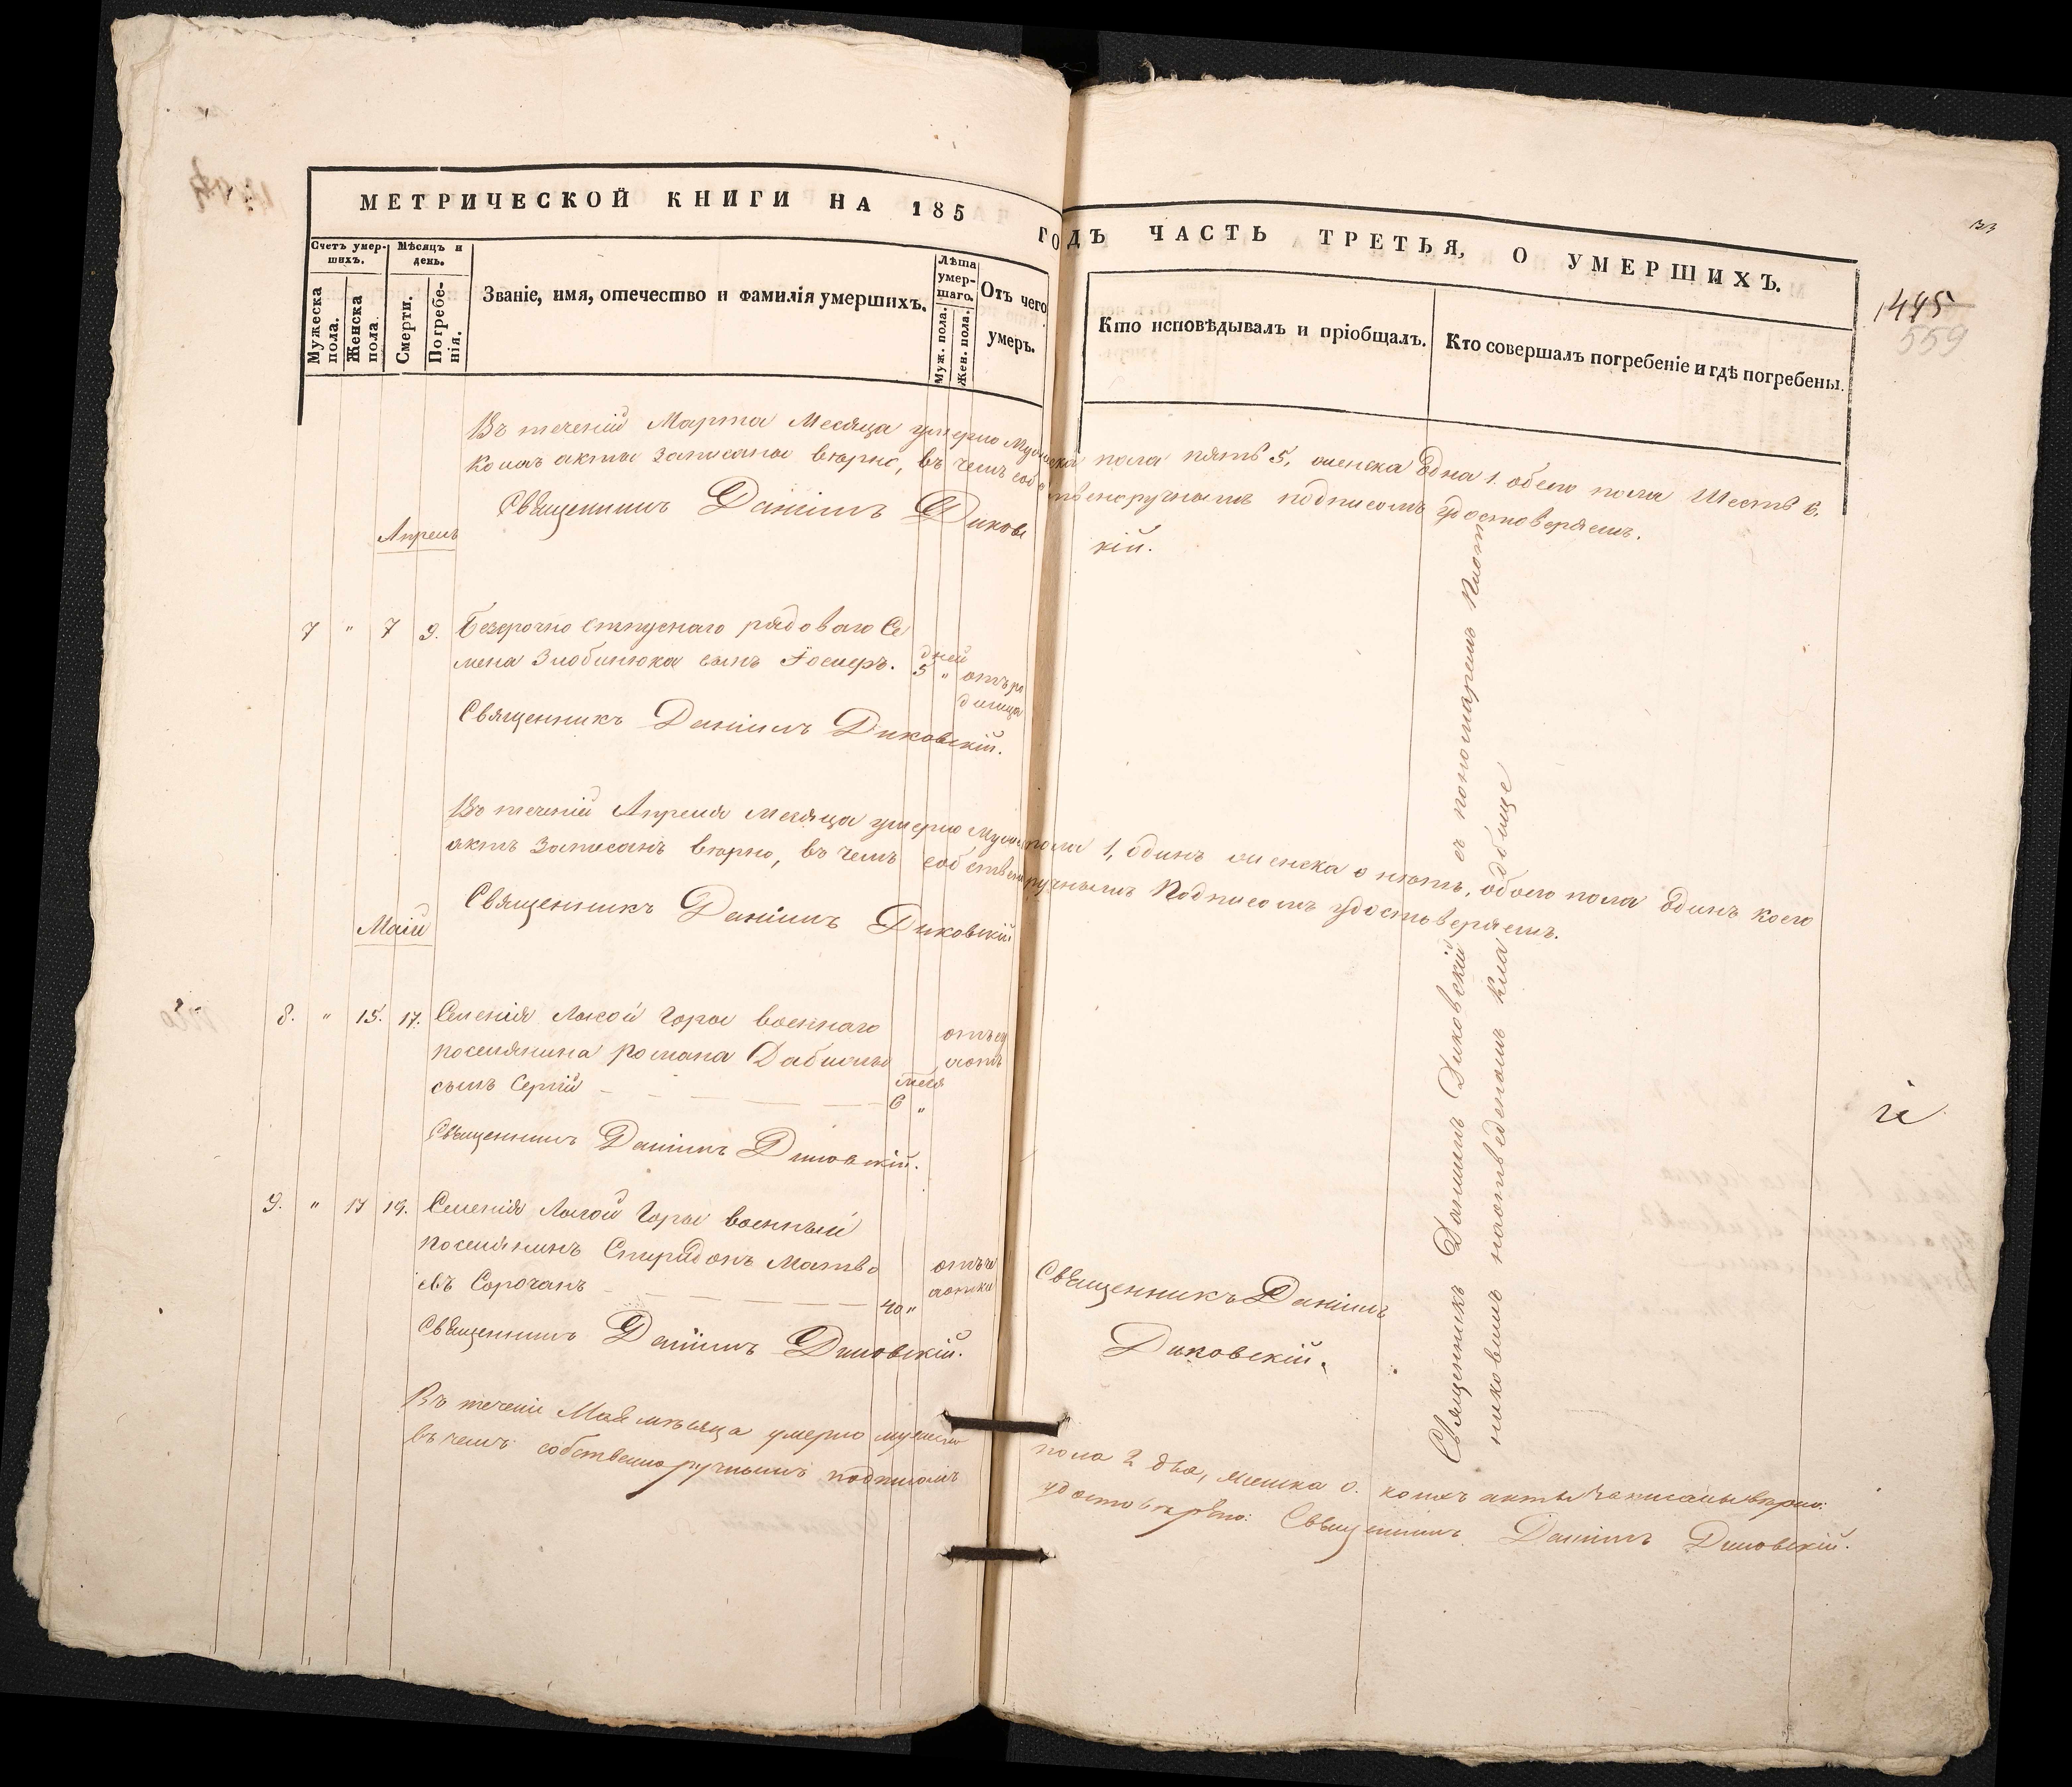 МЕТРИЧЕСКОЙ КНИГИ НА 185 ГОДЪ ЧАСТЬ ТРЕТЬЯ, О УМЕРШИХЪ.
1445
559
Счетъ умершихъ.
Мужеска пола.
Женска пола.
Мѣсяцъ и день.
Смерти.
Погребенія.
Званіе, имя, отечество и фамилія умершихъ.
Лѣта умершаго.
Муж. пола.
Жен. пола.
Отъ чего умеръ.
Кто исповѣдывалъ и пріобщалъ.
Кто совершалъ погребеніе и гдѣ погребены.
Въ теченіи Марта Месяца умерло Мужеска пола пять 5, женска Одна 1. обего пола Шесть 6.
Коихъ акты записаны вѣрно, въ чемъ собственоручнымъ подписомъ удостоверяемъ.
Священникъ Даніилъ Диковскій.
Апрель
7 " 7 9. Безсрочно отпускнаго рядоваго Се
мена Злобинюка сынъ
дней
5 "
Священникъ Даніилъ Диковскій.
Въ теченіи Апреля месяца умерло Мужес пола 1, одинъ женска 0 нѣтъ, обоего пола Одинъ коего
актъ записанъ вѣрно, въ чемъ собственоручнымъ Подписомъ удостоверяемъ.
Священникъ Даніилъ Диковскій
Маій
8. " 15. 17. Селенія Лысой Горы военнаго
поселянина романа
сынъ Сергій
6 "
Священникъ Даніилъ Диковскій.
9. " 17 19. Селенія Лысой Горы военный
поселянинъ Спиридонъ Матве
евъ Сорочанъ
40 "
Священникъ Даніилъ Диковскій.
Священникъ Даніилъ
Диковскій.
Священникъ Даніилъ Диковскій съ пономаремъ
кладбище
Въ теченіи Мая мѣсяца умерло мужеска пола 2 два, женска 0. коихъ акты записаны вѣрно:
въ чемъ собственноручнымъ подписомъ удостовѣряю: Священникъ Даніилъ Диковскій.